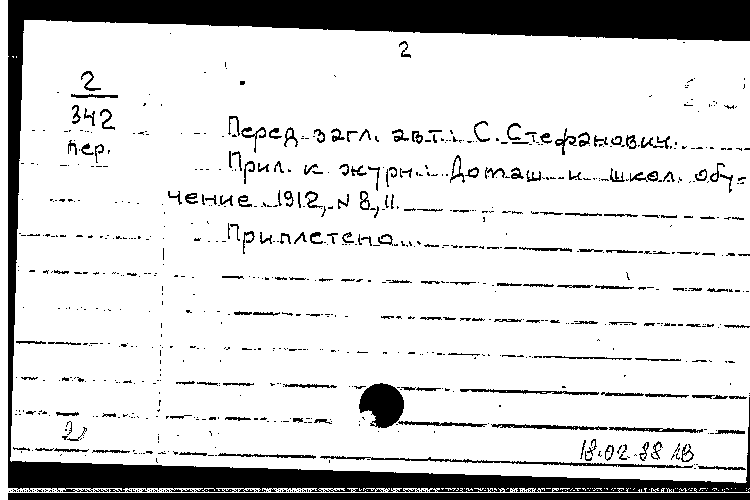 2
2
342
пер.
Перед загл. авт.: С. Стефанович.
Прил. к журн.: Домаш. и школ. обу-
чение. 1912, N 8, 11.
Приплетено.
2
18.02.88 ЛВ